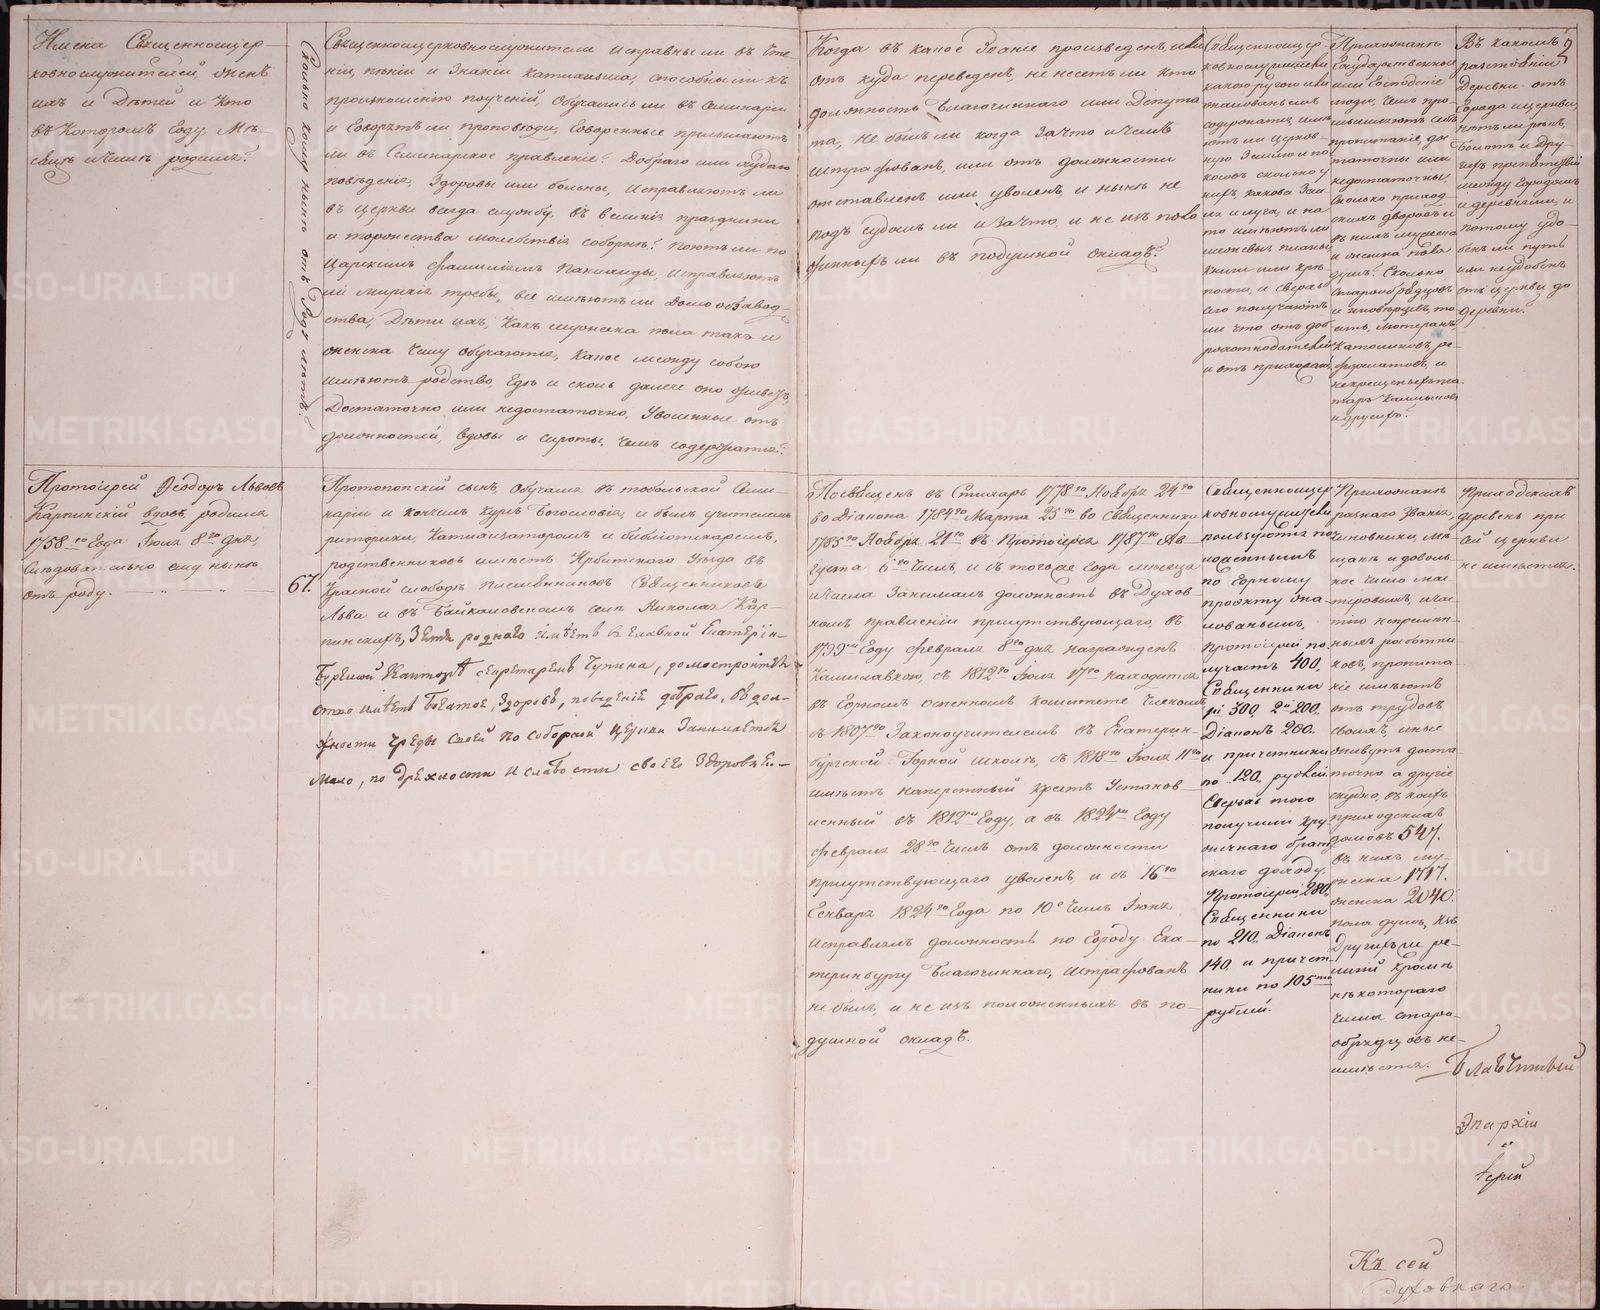 Имена Священноцер-
ковнослужителей, женъ
ихъ и Дѣтей и кто
въ которомъ году, Мѣ-
сяцѣ и числѣ родился?
Сколько кому нынѣ отъ роду лѣтъ?
Священноцерковнослужители исправны ли въ чте-
ніи, пѣніи и знаніи катихизиса, способны ли къ
произношенію поученій, обучались ли въ Семинаріи
и говорятъ ли проповѣди, говоренные присылаютъ
ли въ Семинарское правленіе? Добраго или худаго
поведенія, здоровы или больны, исправляютъ ли
въ церкви всегда службу, въ великія праздники
и торжества молебствія соборнѣ? поютъ ли по
Царскимъ фамиліямъ панихиды, исправляютъ
ли мирскія требы, все имѣютъ ли домообзавод-
ства, Дѣти ихъ, какъ мужеска пола такъ и
женска чему обучаются, какое между собою
имѣютъ родство, гдѣ и сколь далече оно живетъ,
Достаточно или недостаточно, уволенные отъ
должностей, вдовы и сироты, чемъ содержатся?
Когда въ какое званіе произведенъ, или
отъ куда переведенъ, не несетъ ли кто
должность Благочиннаго или Депута
та, не былъ ли когда за что и чемъ
штрафованъ, или отъ должности
отставленъ или уволенъ, и нынѣ не
подъ судомъ ли и за что, и не изъ поло
женныхъ ли въ подушной окладъ?
Священноцер-
ковнослужители
какою ругою или
жалованьемъ
содержатся, имѣ-
ютъ ли церков-
ную землю и по
косовъ сколько у
нихъ, какова зем-
ля и луга, и на
то имѣютъ ли
межевые планы,
книги или крѣ-
пости, и сверхъ
сего получаютъ
ли что отъ доб
рохотнодателей
и отъ прихожанъ
Прихожанъ
Государственные
или Господскіе
люди, чемъ про-
мышляютъ себѣ
пропитаніе, дос
таточны или
недостаточны,
сколько приход-
скихъ дворовъ и
въ нихъ мужеска
и женска пола
душъ? Сколько
старообрядцовъ
и иновѣрцевъ, то
есть, лютеранъ,
католиковъ, ре-
форматовъ, и
некрещеныхъ та
таръ калмыковъ
и другихъ?
Въ какомъ
разстояніи
Деревни отъ
города и церкви,
нѣтъ ли рѣкъ,
болотъ и дру-
гихъ препятствій
между городомъ
и деревнями, и
потому удо-
бенъ ли путь
или неудобенъ
отъ церкви до
деревни?
2
Протоіерей Ѳеодоръ Львовъ
Карпинскій вдовъ, родился
1758го года Іюля 8го дня,
слѣдовательно ему нынѣ
отъ роду.
67.
Протопопскій сынъ, обучался въ тобольской Семи-
наріи и кончилъ курсъ Богословія, и былъ учителемъ
риторики, Катихизаторомъ и библіотекаремъ,
родственниковъ имѣетъ Ирбитскаго Уѣзда въ
Красной слободѣ племянниковъ Священниковъ
Льва и въ Байкаловскомъ селѣ Николая Кар-
пинскихъ, зятя роднаго имѣетъ в главной Екатерин-
бургской Конторѣ секретаремъ Чупина, домостроитель
ство имѣетъ богатое, здоровъ, поведенія добраго, въ дол-
жности чреды своей по соборной церкви занимается
мало, по дряхлости и слабости своего здоровья.—
Посвященъ въ Стихарь 1778го Ноября 24го
во Діакона 1784го Марта 25го во Священники
1785го Ноября 21го въ Протоіерея 1787го Ав
густа 6го числа и съ тогоже года мѣсяца
и числа занималъ должность въ Духов-
номъ правленіи присутствующаго, въ
1799мъ году февраля 8го дня награжденъ
Камилавкою, съ 1812го Іюля 17го находится
въ Горномъ оспенномъ комитете членомъ
съ 1807го Законоучителемъ въ Екатерин-
бургской Горной школѣ, съ 1818го Іюля 11го
имѣетъ наперсный крестъ Установ
ленный въ 1812мъ году, а съ 1824мъ году
февраля 28го числа отъ должности
присутствующаго уволенъ, и съ 16го
Генваря 1824го года по 10е число Іюня
исправлялъ должность по городу Ека-
теринбургу Благочиннаго, штрафованъ
не былъ, и не изъ положенныхъ въ по-
душной окладъ.
Священноцер
ковнослужители
пользуются по
ложеннымъ
по Горному
проэкту жа-
лованьемъ,
Протоіерей по
лучаетъ 400,
Священники
1й 300, 2й 200
Діаконъ 200.
и причетники
по 120. рублей
Сверхъ того
получили кру
жечнаго брат
скаго доходу.
Протоіерей 280,
Священники
по 210. Діаконъ
140. и причет
ники по 105ти
рублей.
Прихожанъ
разнаго званія,
чиновники, мѣ-
щанъ и доволь
ное число мас
теровыхъ, и час
тію непремен-
ныхъ работни
ковъ, пропита
ніе имѣютъ
отъ трудовъ
своихъ, иные
живутъ доста
точно а другіе
скудно, въ коихъ
приходскихъ
домовъ 547.
въ нихъ му-
жска 1717.
женска 2040.
пола душъ, изъ
Другихъ ли ре-
лигій кромѣ
нѣкотораго
числа старо-
обрядцовъ не-
имѣется.
Приходскихъ
деревень при
сей церкви
не имѣется.
Благочинный
Эпархіи
іерей
Къ сей
духовнаго
METRIKI.GASO-URAL.RU